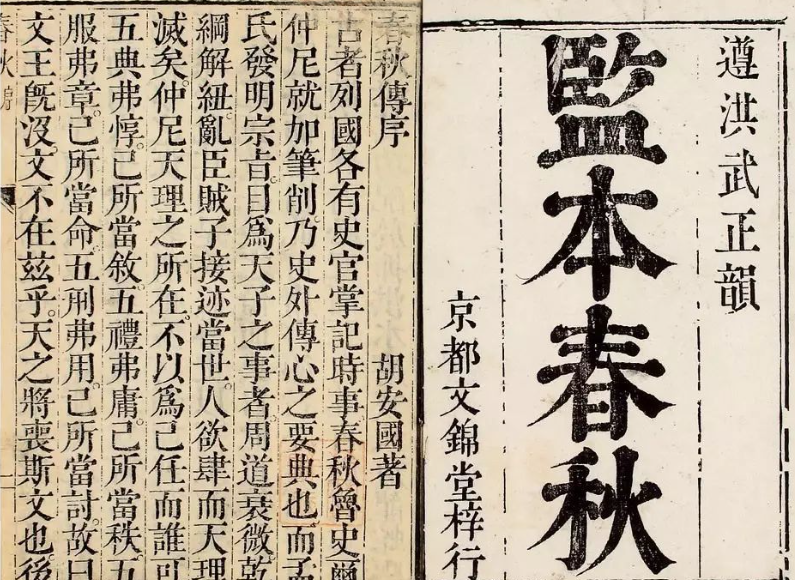 遵洪武正韻
監本春秋
京都文錦堂梓行
春秋傳序 胡安國著
古者列國各有史官掌記時事春秋魯史爾
仲尼就加筆削乃史外傳心之要典也而孟
氏發明宗旨目爲天子之事者周道衰微乾
綱解紐亂臣賊子接迹當世人欲肆而天理
滅矣。仲尼天理之所在。不以爲己任而誰可
五典弗惇。己所當敘。五禮弗庸。己所當秩。五
服弗章。己所當命。五刑弗用。己所當討。故曰
文王旣沒。文不在茲乎。天之將喪斯文也後
春秋